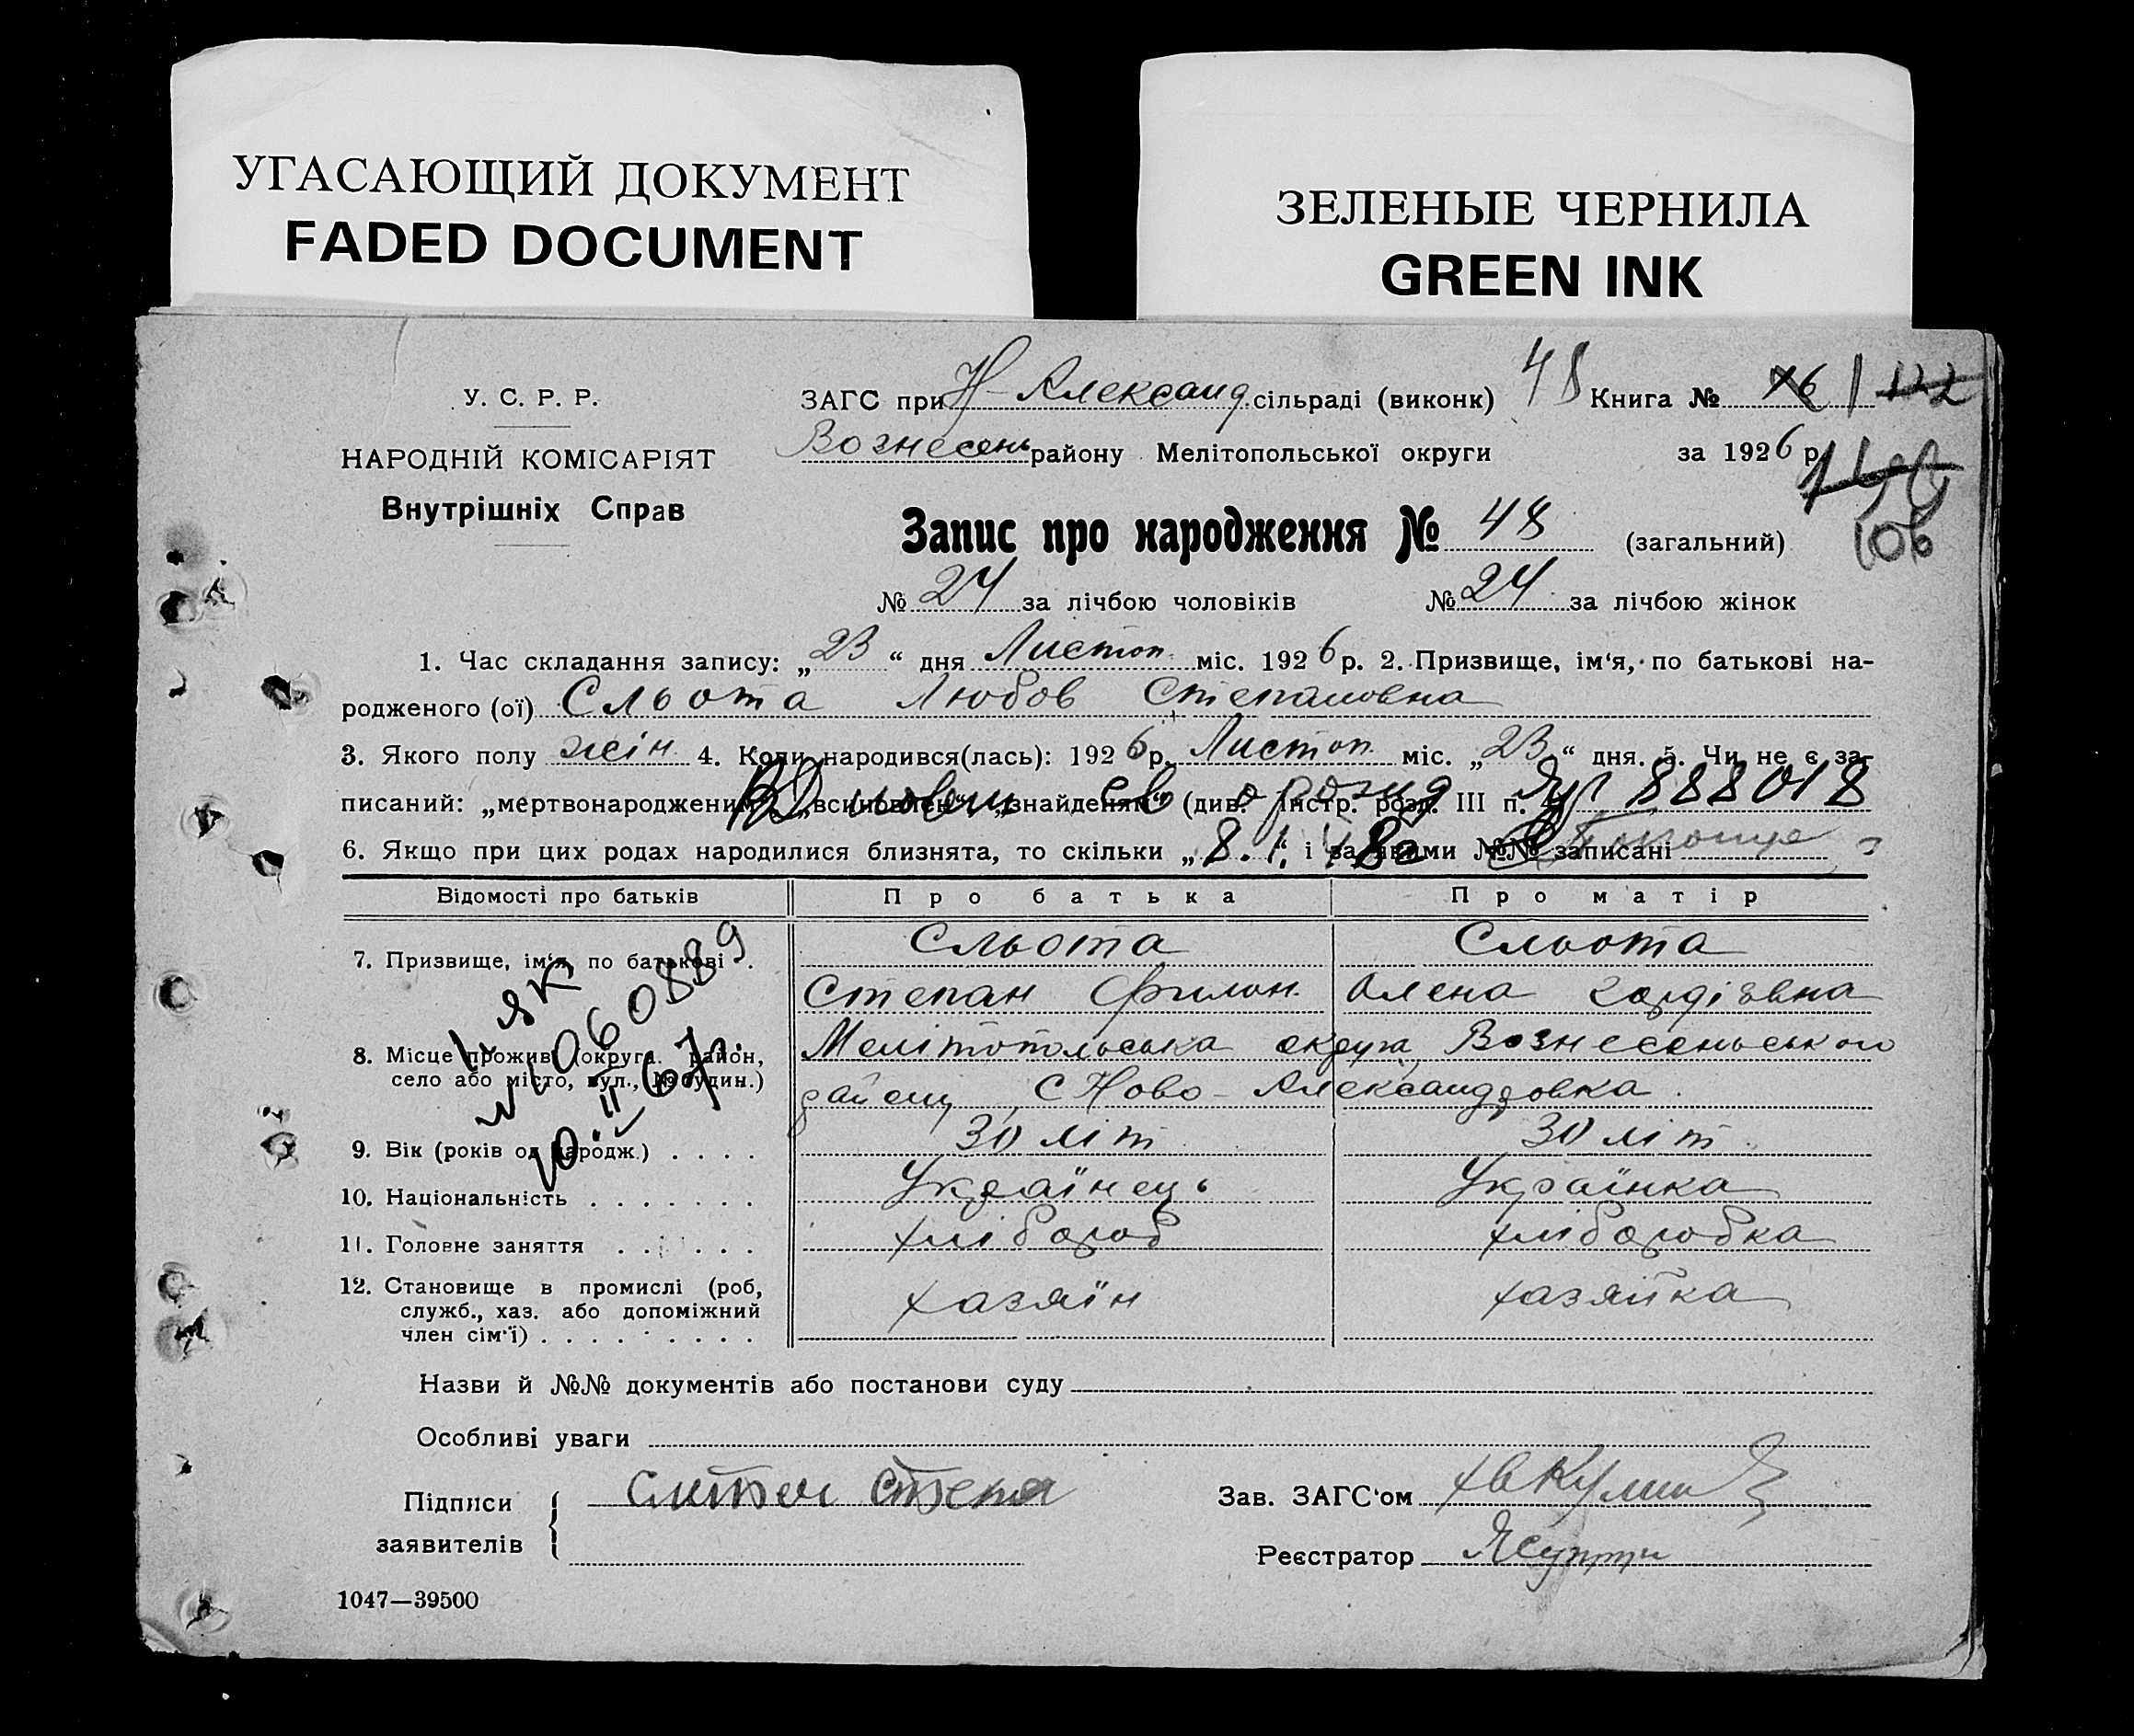 УГАСАЮЩИЙ ДОКУМЕНТ
FADED DOCUMENT
ЗЕЛЕНЫЕ ЧЕРНИЛА
GREEN INK
У. С. Р. Р.
НАРОДНІЙ КОМІСАРІЯТ
Внутрішніх Справ
ЗАГС при Н-Александ. сільраді (виконк) 48 Книга №
Вознесень району Мелітопольської округи за 1926 р.
106
Запис про народження № 48 (загальний)
№ 24 за лічбою чоловіків № 24 за лічбою жінок
1. Час складання запису: „23“ дня Листоп. міс. 1926 р. 2. Призвище, ім‘я, по батькові на-
родженого (ої) Сльота Любов Степановна
3. Якого полу жін. 4. Коли народився(лась): 1926 р. Листоп. міс. „23“ дня. 5. Чи не є за-
писаний: „мертвонароджений“, „всиновлен“, „знайденям“ (див. інстр. розд. III п.
888018
6. Якщо при цих родах народилися близнята, то скільки „ “ і за якими №№ записані
Відомості про батьків Про батька Про матір
7. Призвище, ім‘я, по батькові . Сльота Сльота
Степан Филон. Олена Гордієвна
8. Місце прожив. (округа. район, Мелітопольська округа, Вознесенського
село або місто, вул., № будин.) району, С Ново-Александровка.
9. Вік (років од народж.) . . . . 30 літ 30 літ.
10. Національність . . . . . . . Українець Українка
11. Головне заняття . . . . . . хлібороб хлібородбка
12. Становище в промислі (роб, хазяїн хазяйка
служб., хаз. або допоміжний
член сім‘ї) . . . . . . . . .
Назви й №№ документів або постанови суду
Особливі уваги
Підписи
заявителів
Зав. ЗАГС‘ом
Реєстратор
1047—39500